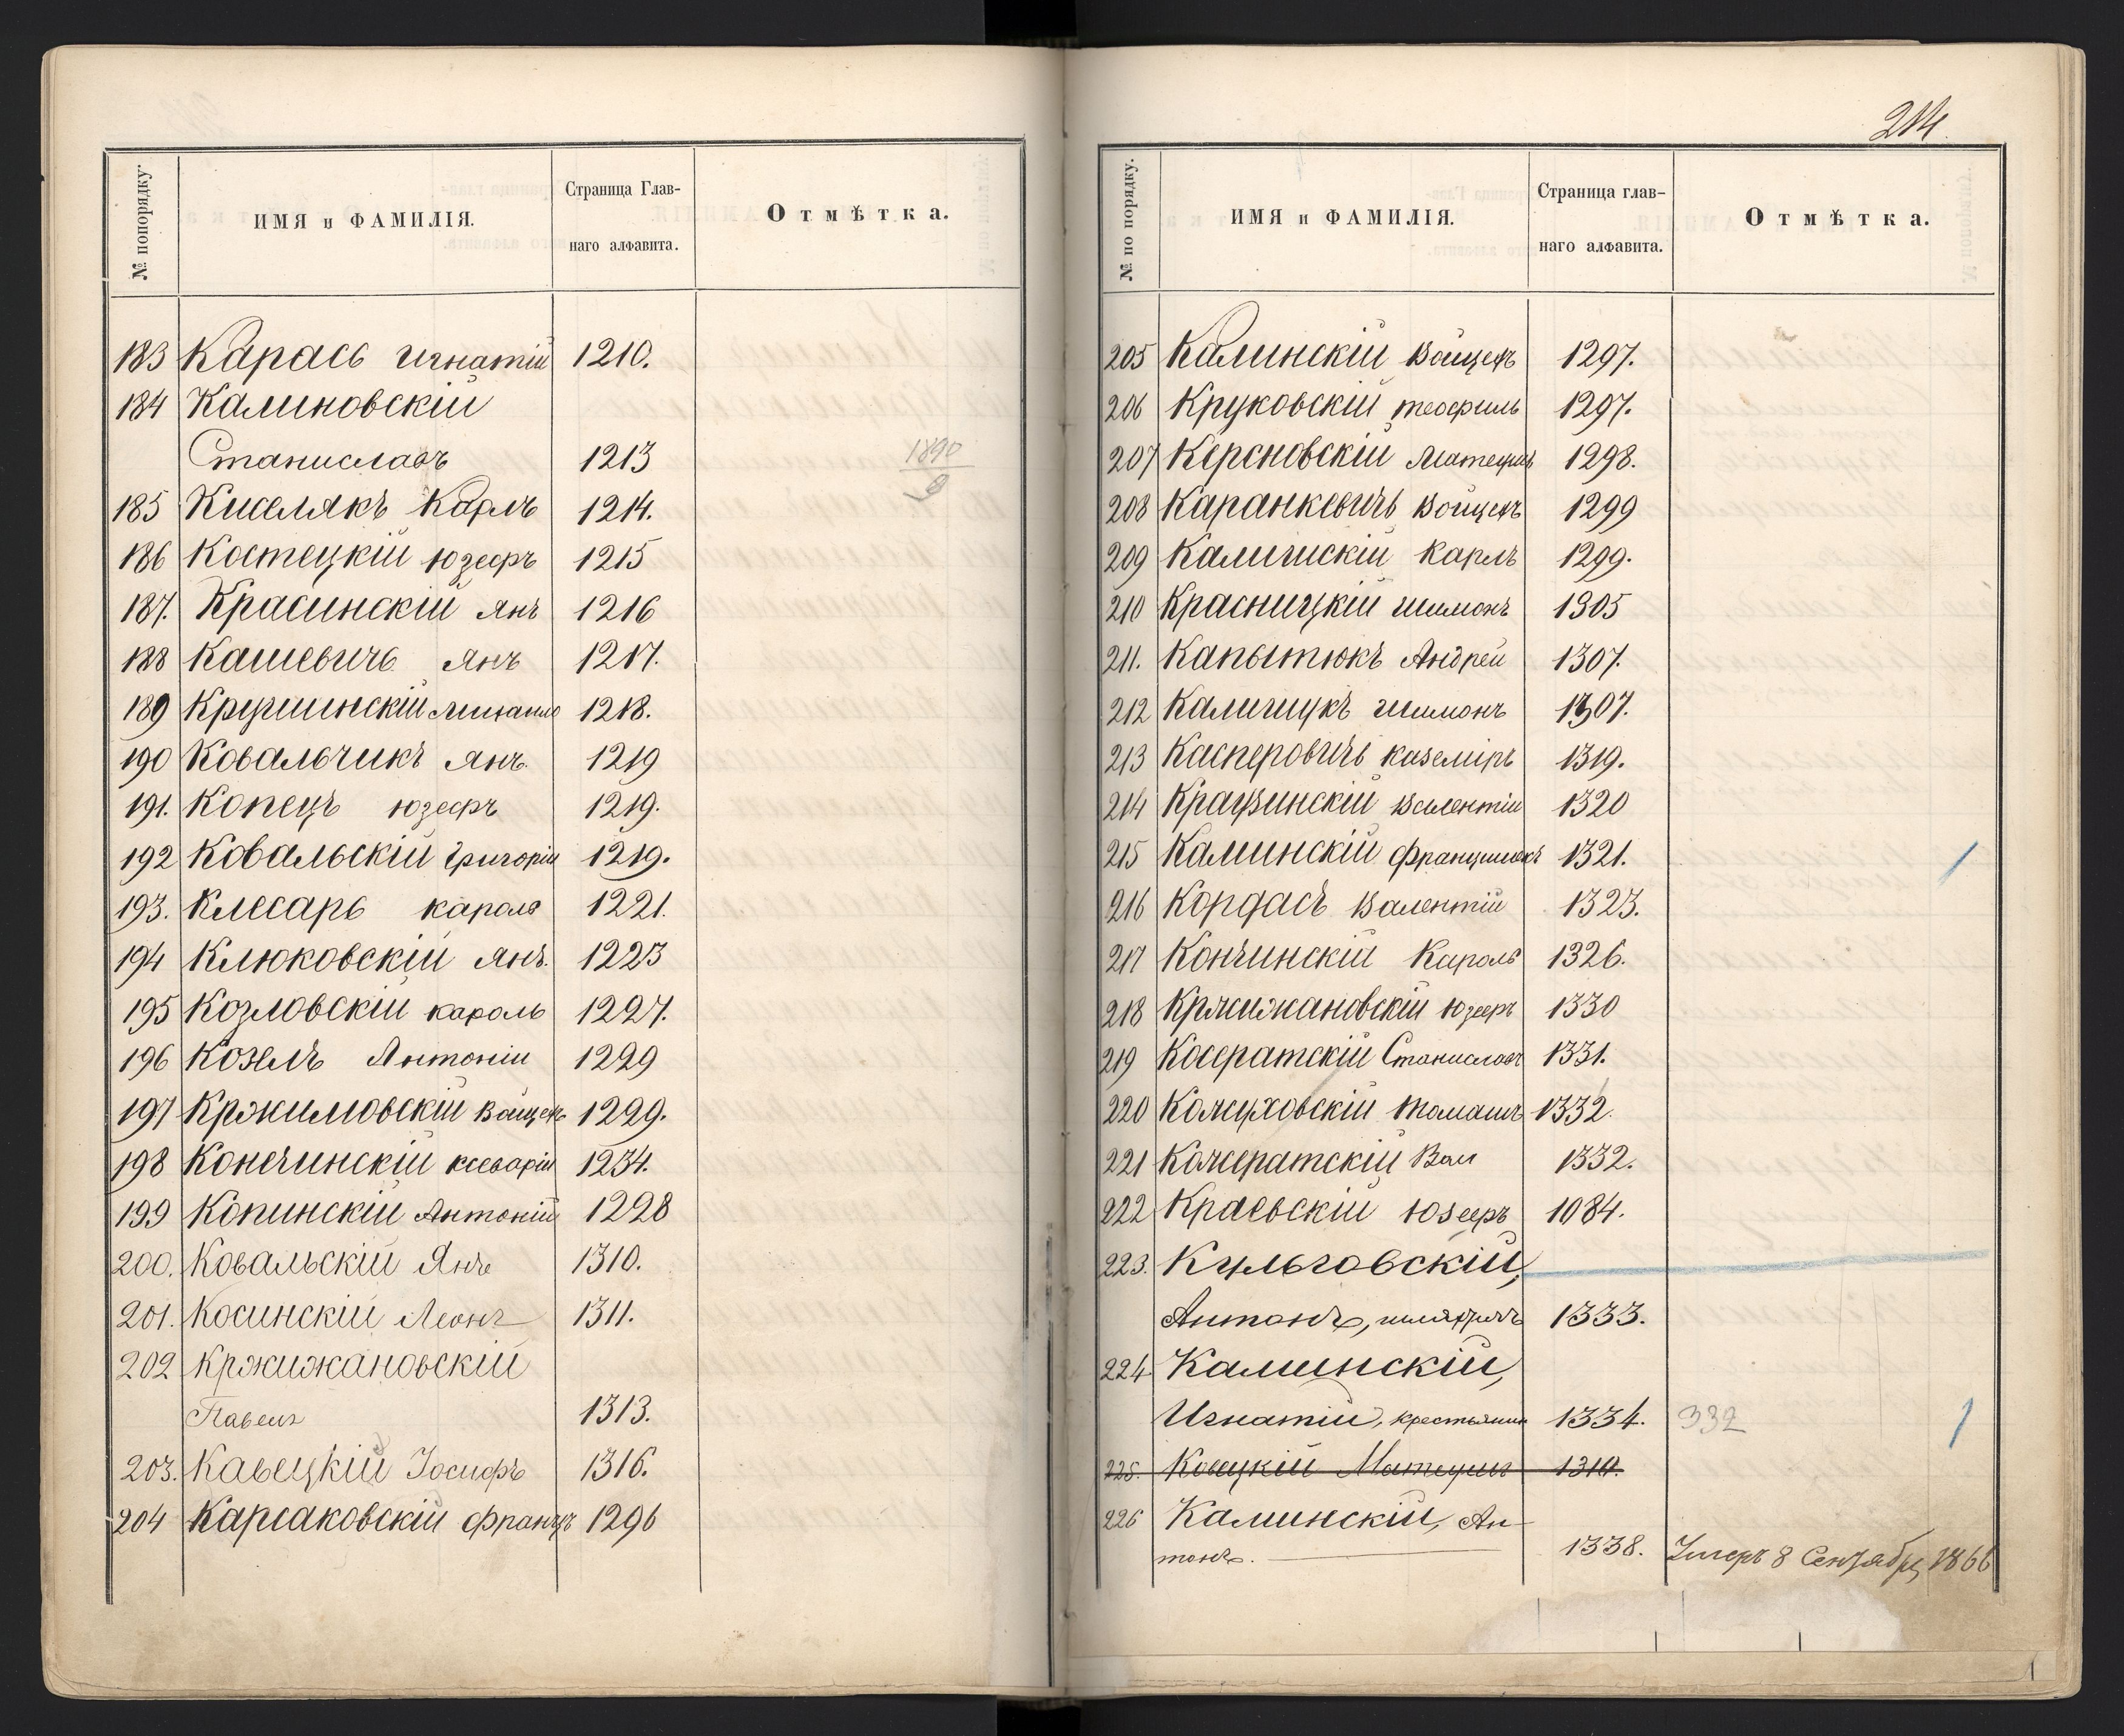 № попорядку.
ИМЯ и ФАМИЛІЯ.
Страница Глав-
наго алфавита.
Отмѣтка.
183 Карась Игнатій 1210.
184 Калиновскій
Станиславъ 1213 1890
185 Киселякъ Карлъ 1214.
186 Костецкій Юзефъ 1215
187. Красинскій Янъ 1216
188 Кашевичъ Янъ 1217.
189 Михаилъ 1218.
190 Ковальчикъ Янъ. 1219
191. Копецъ Юзефъ 1219.
192 Ковальскій Григорій 1219.
193. Клесарь Кароль 1221.
194 Клюковскій Янъ. 1223
195 Козловскій Кароль 1227.
196 Козелъ Антоній 1229
197 Кржимовскій Войцехъ 1229.
198 Конечинскій 1234.
199 Копинскій Антоній 1228
200. Ковальскій Янъ 1310.
201. Косинскій Леонъ 1311.
202 Кржижановскій
Павелъ 1313.
203. Кавецкій Іосифъ 1316.
204 Карсаковскій Францъ 1296
214.
№ по порядку.
ИМЯ и ФАМИЛІЯ.
Страница глав-
наго алфавита.
Отмѣтка.
205 Калинскій Войцехъ 1297.
206 Круковскій Теофиль 1297.
207 Керсновскій Матеушъ 1298.
208 Каранкевичъ Войцехъ 1299
209 Карлъ 1299.
210 Красницкій Шимонъ 1305
211. Капытюкъ Андрей 1307.
212 Шимонъ 1307.
213 Касперовичъ Каземіръ 1319.
214 Валентій 1320
215 Каминскій Францишекъ 1321.
216 Кордасъ Валентій 1323.
217 Кончинскій Кароль 1326.
218 Кржижановскій Юзефъ 1330
219 Станиславъ 1331.
220 Кожуховскій Томашъ 1332.
221 Вал 1332.
222 Краевскій Юзефъ 1084.
223. Кульговскій,
Антонъ, шляхтичъ 1333.
224 Каминскій,
Игнатій, крестьянин 1334. 332
225. Ковецкій Матеушъ
226 Каминскій, Ан-
тонъ. 1338. Умеръ 8 Сентября 1866